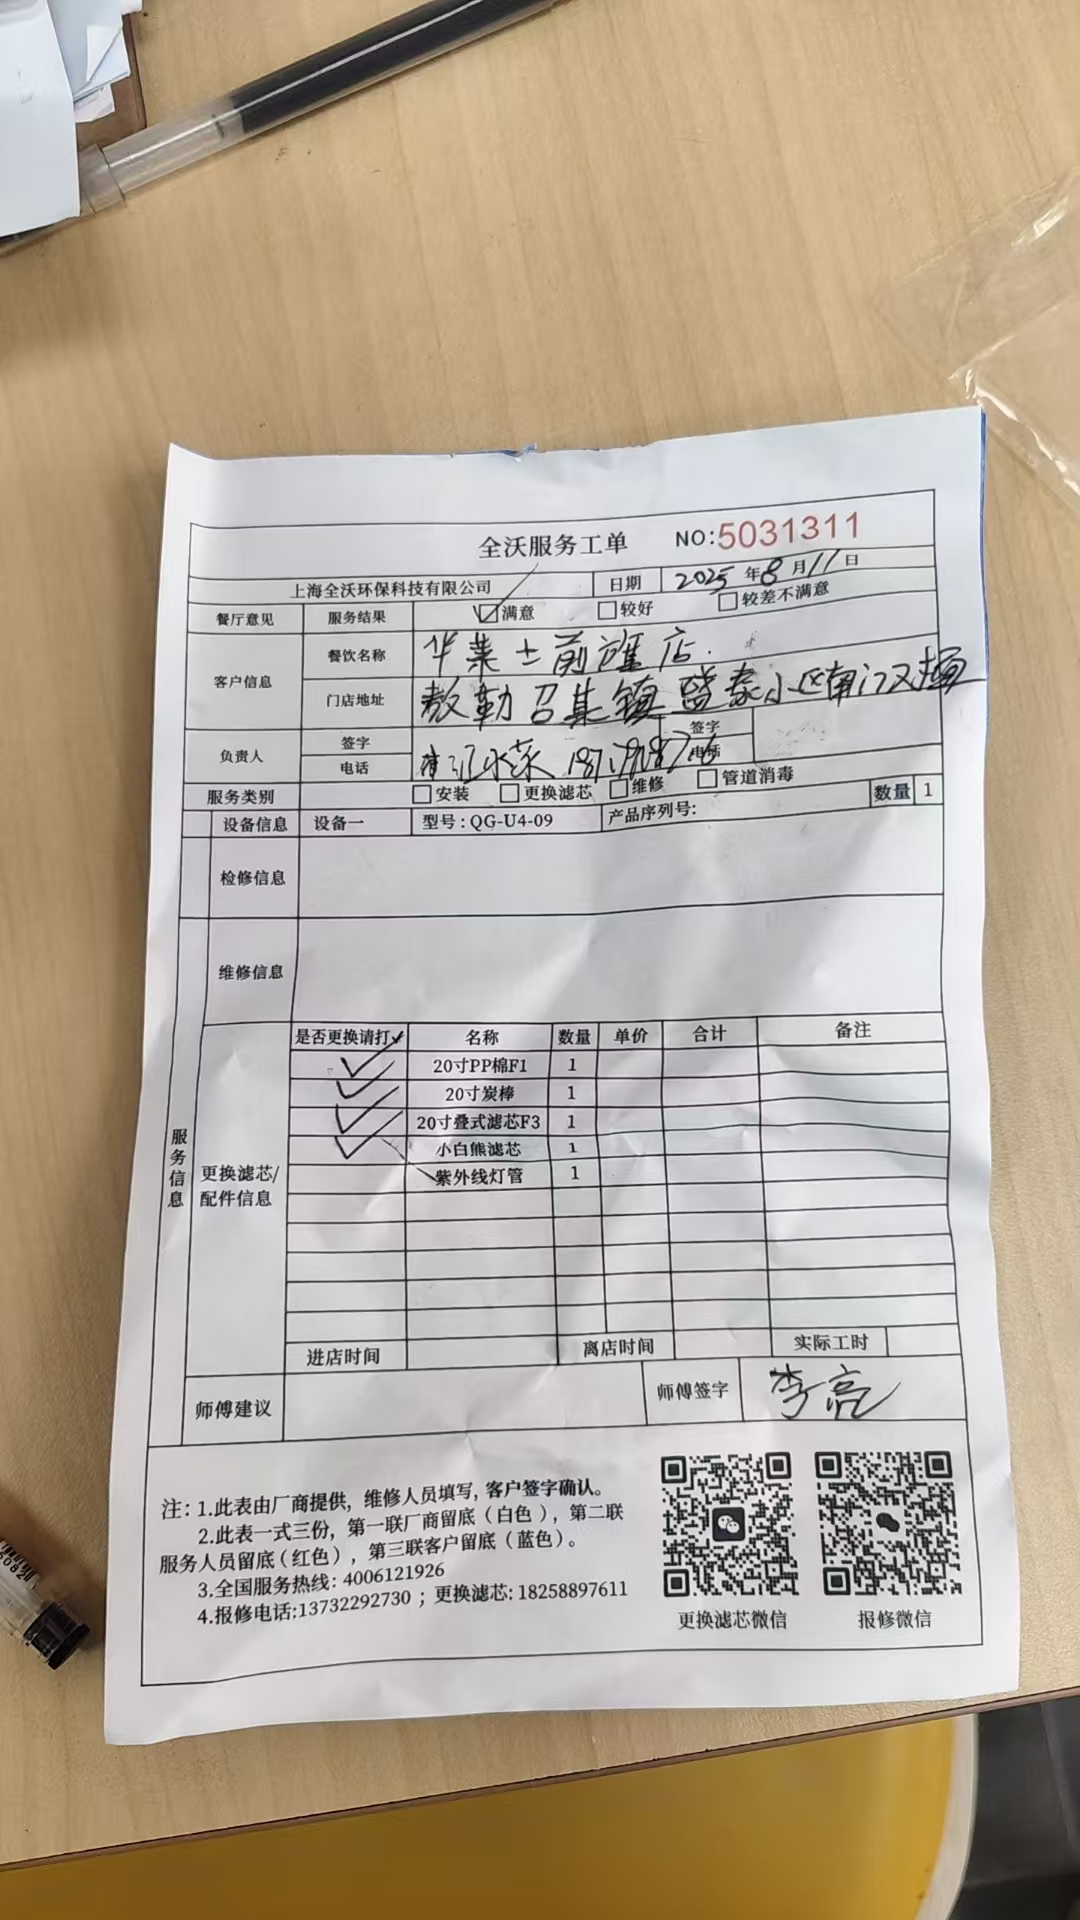 全沃服务工单 NO:5031311
上海全沃环保科技有限公司 日期 2025 年 8 月 11 日
餐厅意见 服务结果 ☑满意 □较好 □较差不满意
客户信息 餐饮名称 华莱士前旗店.
门店地址 敖勒召其镇盛泰小区南门双扬
负责人 签字 签字
电话 电话
服务类别 □安装 □更换滤芯 □维修 □管道消毒
设备信息 设备一 型号:QG-U4-09 产品序列号: 数量 1
检修信息
维修信息
服务信息
更换滤芯/配件信息
是否更换请打✓ 名称 数量 单价 合计 备注
✓ 20寸PP棉F1 1
✓ 20寸炭棒 1
✓ 20寸叠式滤芯F3 1
✓ 小白熊滤芯 1
紫外线灯管 1
进店时间 离店时间 实际工时
师傅建议 师傅签字 李亮
注: 1.此表由厂商提供, 维修人员填写, 客户签字确认。
2.此表一式三份, 第一联厂商留底 (白色 ), 第二联
服务人员留底 (红色) , 第三联客户留底 (蓝色) 。
3.全国服务热线: 4006121926
4.报修电话:13732292730 ; 更换滤芯: 18258897611
更换滤芯微信 报修微信